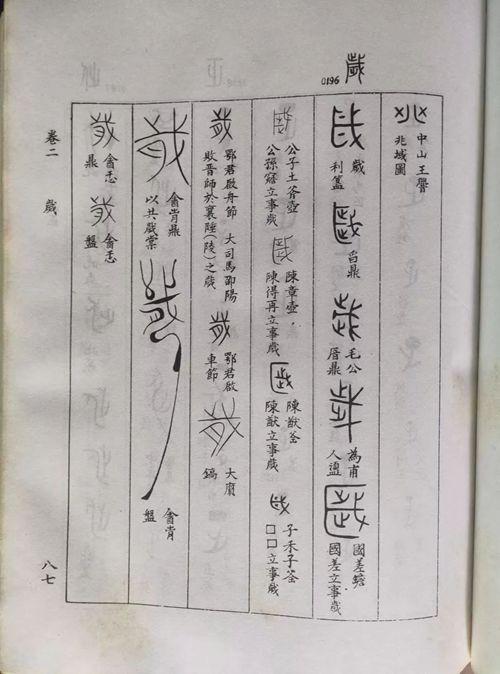 歲
0196
中山王
兆域圖
歲
利簋
舀鼎
毛公
厝鼎
為甫
人盨
國差
國差立事歲
公子土斧壺
公孫立事歲
陳章壺
陳得再立事歲
陳猷釜
陳猷立事歲
子禾子釜
□□立事歲
鄂君啟舟節 大司馬卲陽
敗晉師於襄陲(陵)之歲
鄂君啟
車節
大
鎬
酓肯鼎
以共歲棠
酓肯
盤
酓忎
鼎
酓忎
盤
卷二 歲
八七